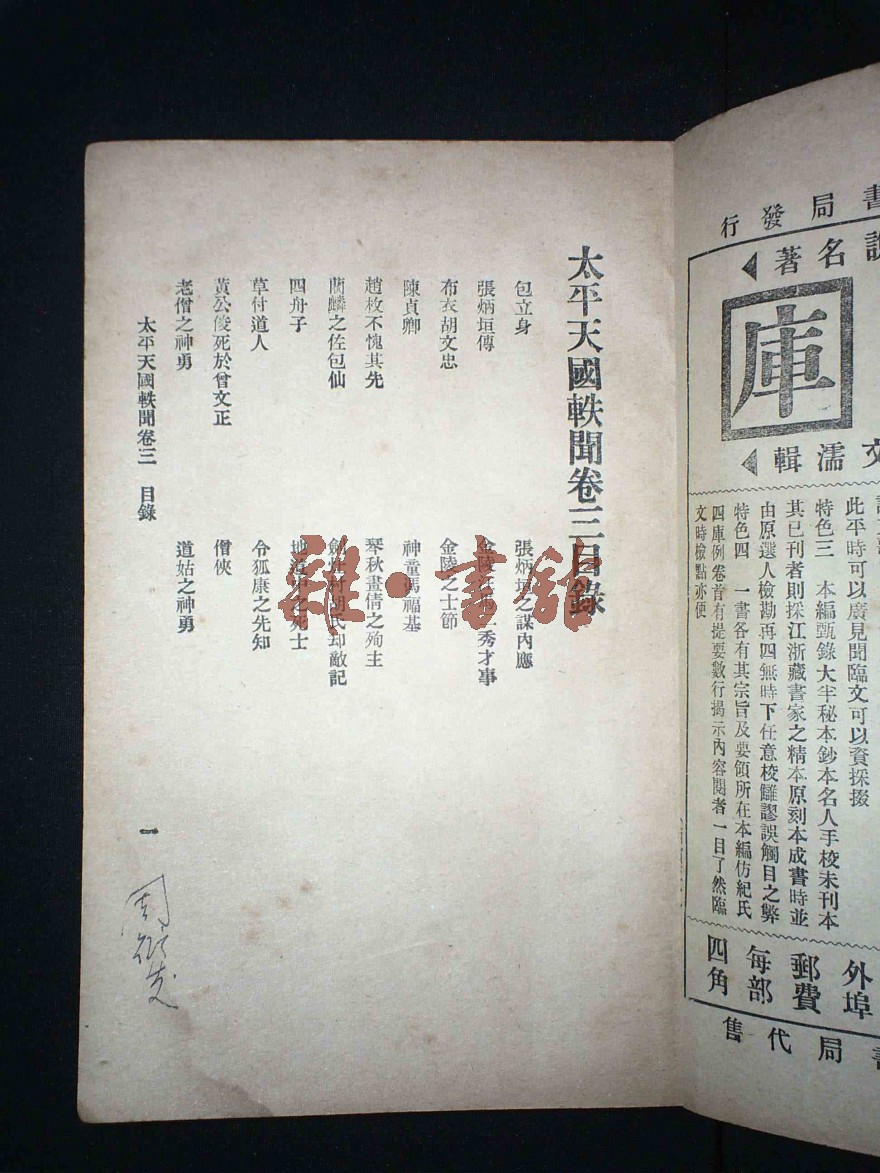 書局發行
說名著
庫
文濡輯
此平時可以廣見聞臨文可以資採掇
特色三 本編甄錄大半秘本鈔本名人手校未刊本
其已刊者則採江浙藏書家之精本原刻本成書時並
由原選人檢勘再四無時下任意校讎謬誤觸目之弊
特色四 一書各有其宗旨及要領所在本編仿紀氏
四庫例卷首有提要數行揭示內容閱者一目了然臨
文時檢點亦便
外埠
郵費
每部
四角
書局代售
太平天國軼聞卷三目錄
包立身 張炳垣之謀內應
張炳垣傳 金陵 二秀才事
布衣胡文忠 金陵之士節
陳貞卿 神童馮福基
趙枚不愧其先 琴秋畫倩之殉主
藺麟之佐包仙 村胡氏却敵記
四舟子 地道中之死士
草付道人 令狐康之先知
黃公俊死於曾文正 僧俠
老僧之神勇 道姑之神勇
太平天國軼聞卷三 目錄
一
雜·書館